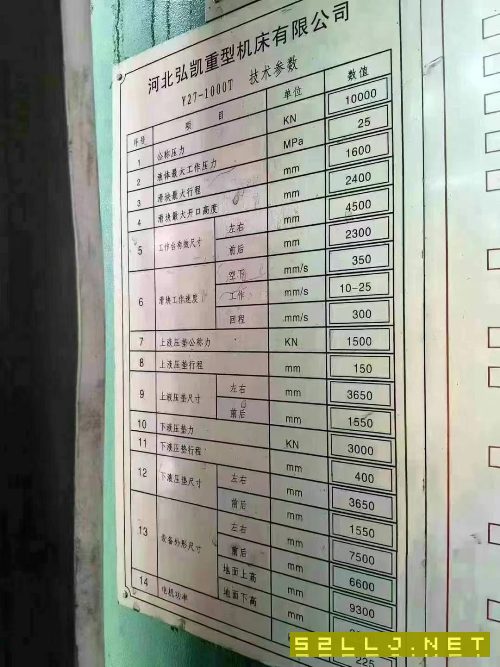 河北弘凯重型机床有限公司
Y27-1000T 技术参数
序号 项目 单位 数值
1 公称压力 KN 10000
2 液体最大工作压力 MPa 25
3 滑块最大行程 mm 1600
4 滑块最大开口高度 mm 2400
5 工作台有效尺寸 左右 mm 4500
前后 mm 2300
6 滑块工作速度 空下 mm/s 350
工作 mm/s 10-25
回程 mm/s 300
7 上液压垫公称力 KN 1500
8 上液压垫行程 mm 150
9 上液压垫尺寸 左右 mm 3650
前后 mm 1550
10 下液压垫力 KN 3000
11 下液压垫行程 mm 400
12 下液压垫尺寸 左右 mm 3650
前后 mm 1550
13 装备外形尺寸 左右 mm 7500
前后 mm 6600
地面上高 mm 9300
地面下高 mm
14 电机功率 225
52LLJ.NET